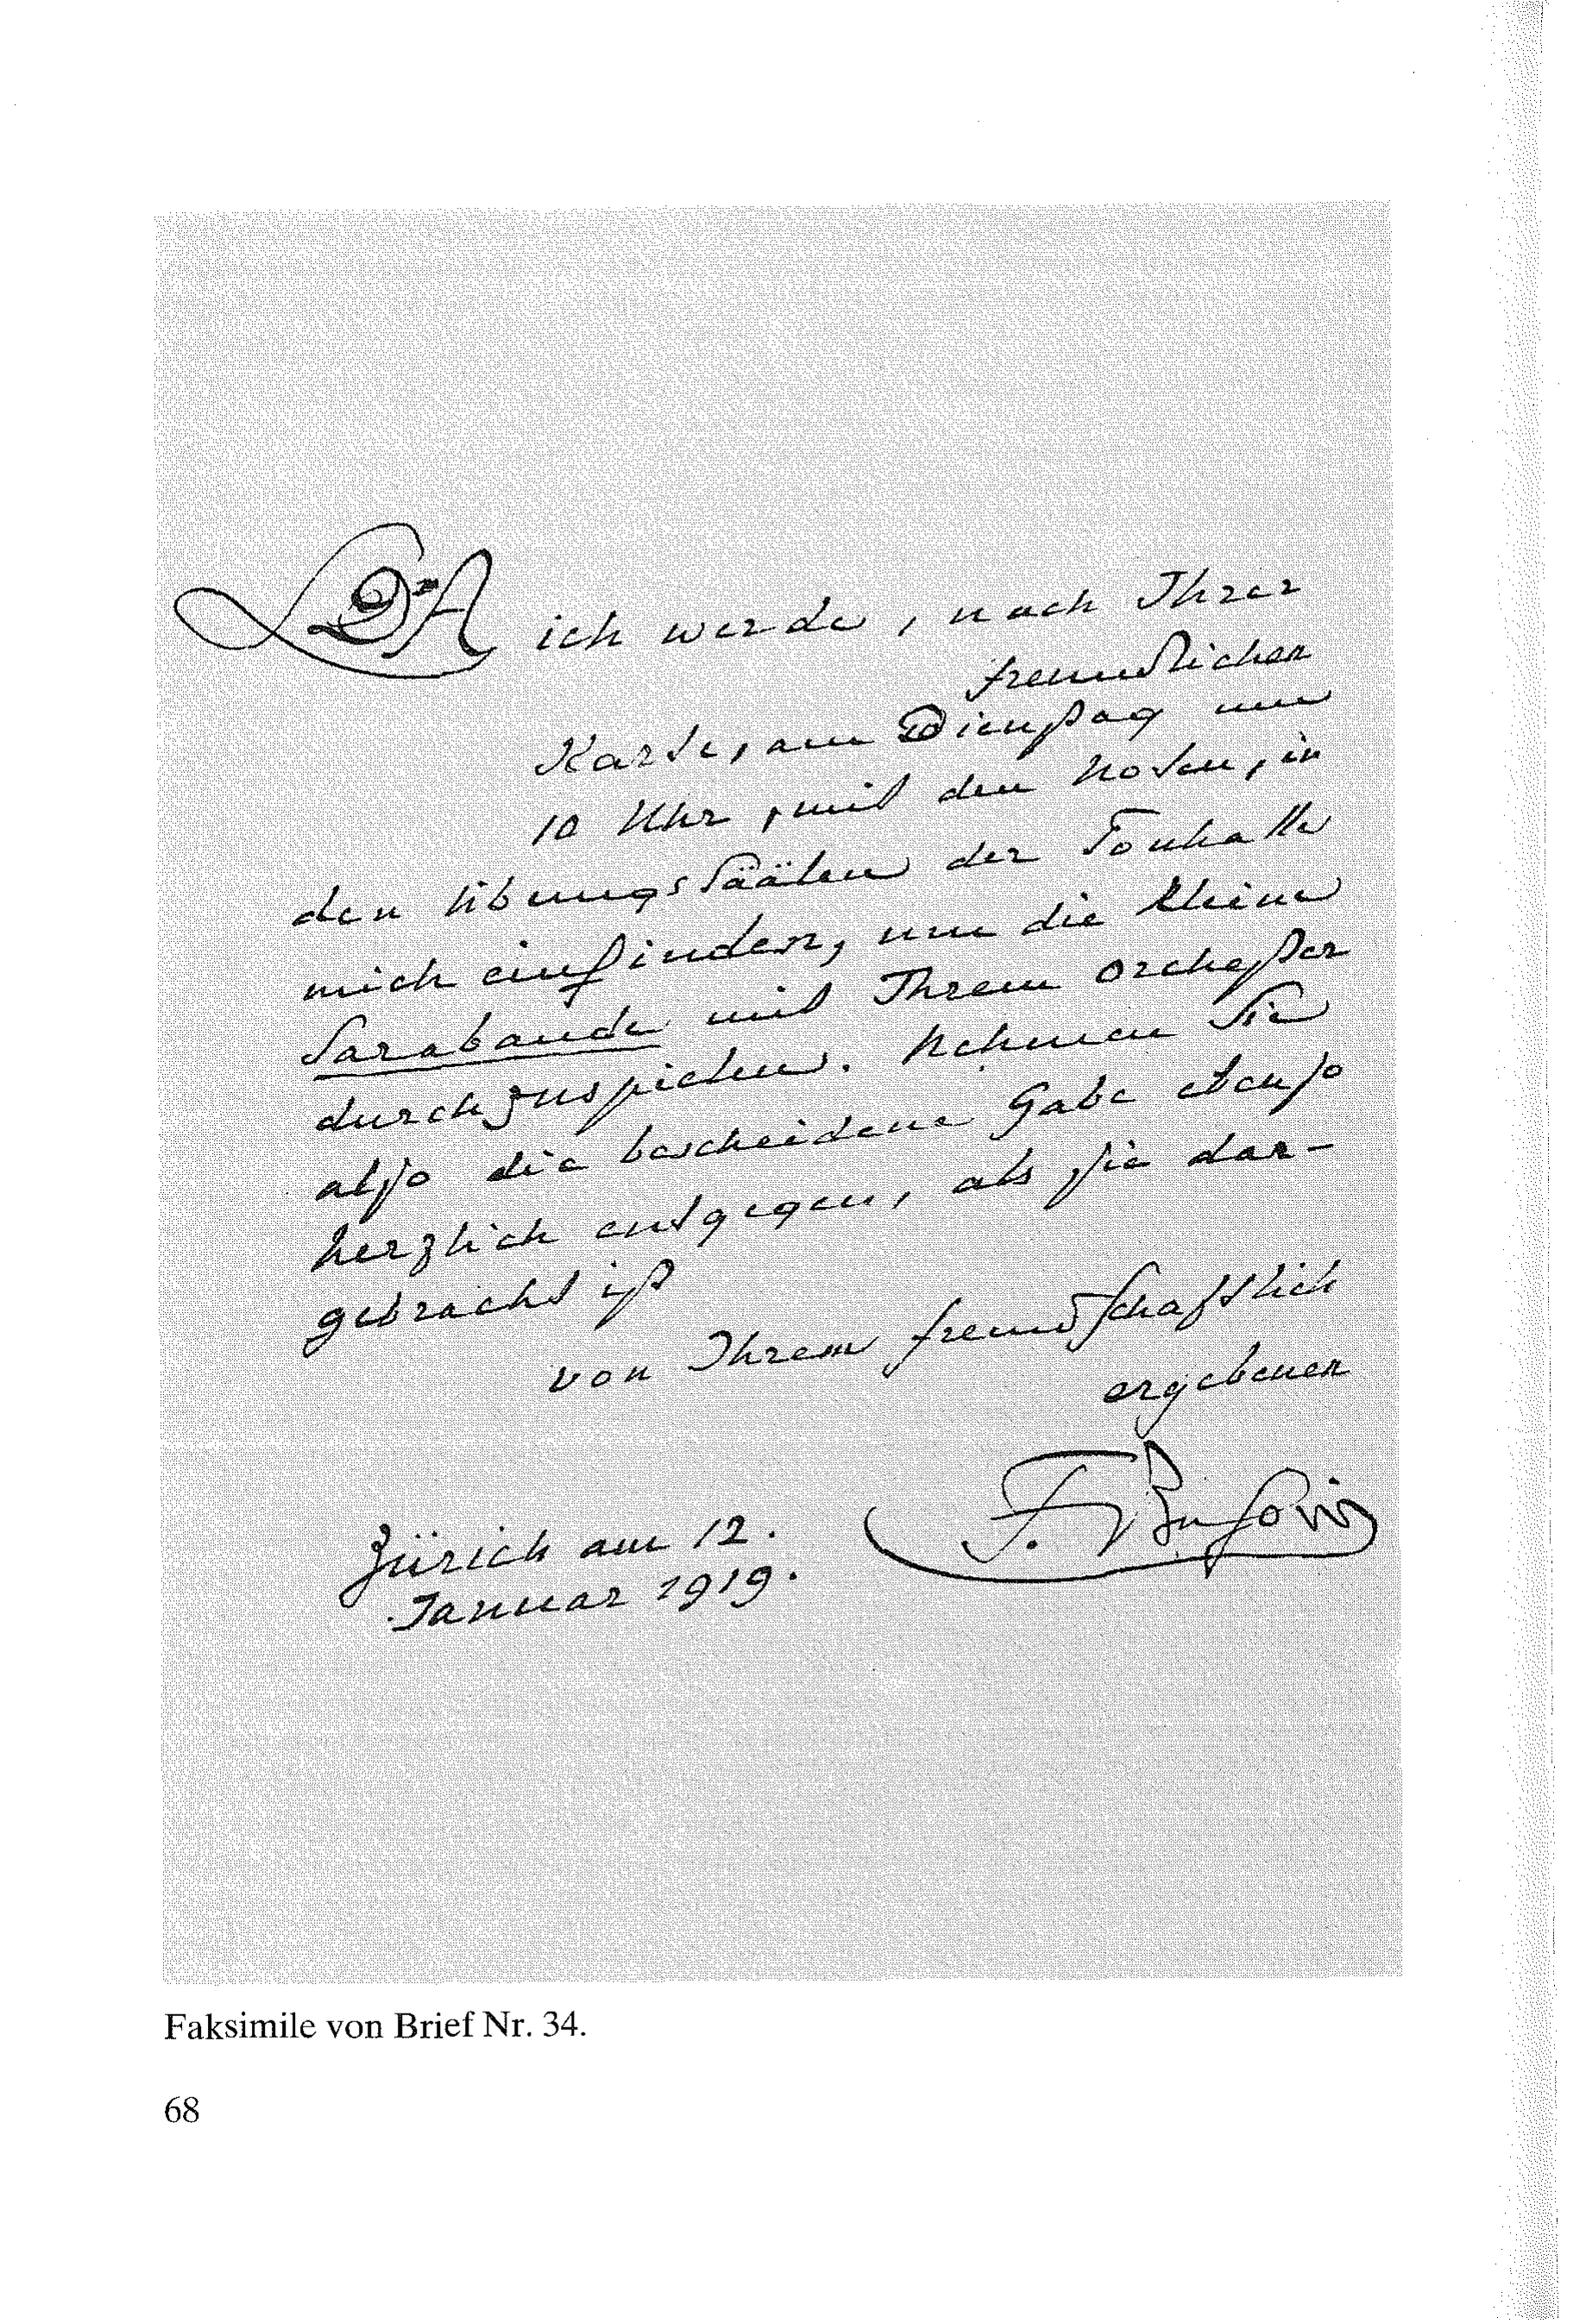 LDA ich werde, nach Ihrer
freundlichen
Karte, am Dienstag um
10 Uhr, mit den Noten, in
den Übungssäälen der Tonhalle
mich einfinden, um die kleine
Sarabande mit Ihrem Orchester
durchzuspielen. Nehmen Sie
also die bescheidene Gabe ebenso
herzlich entgegen, als sie dar-
gebracht ist
von Ihrem freundschaftlich
ergebenen
F. Busoni
Zürich am 12.
Januar 1919.
Faksimile von Brief Nr. 34.
68